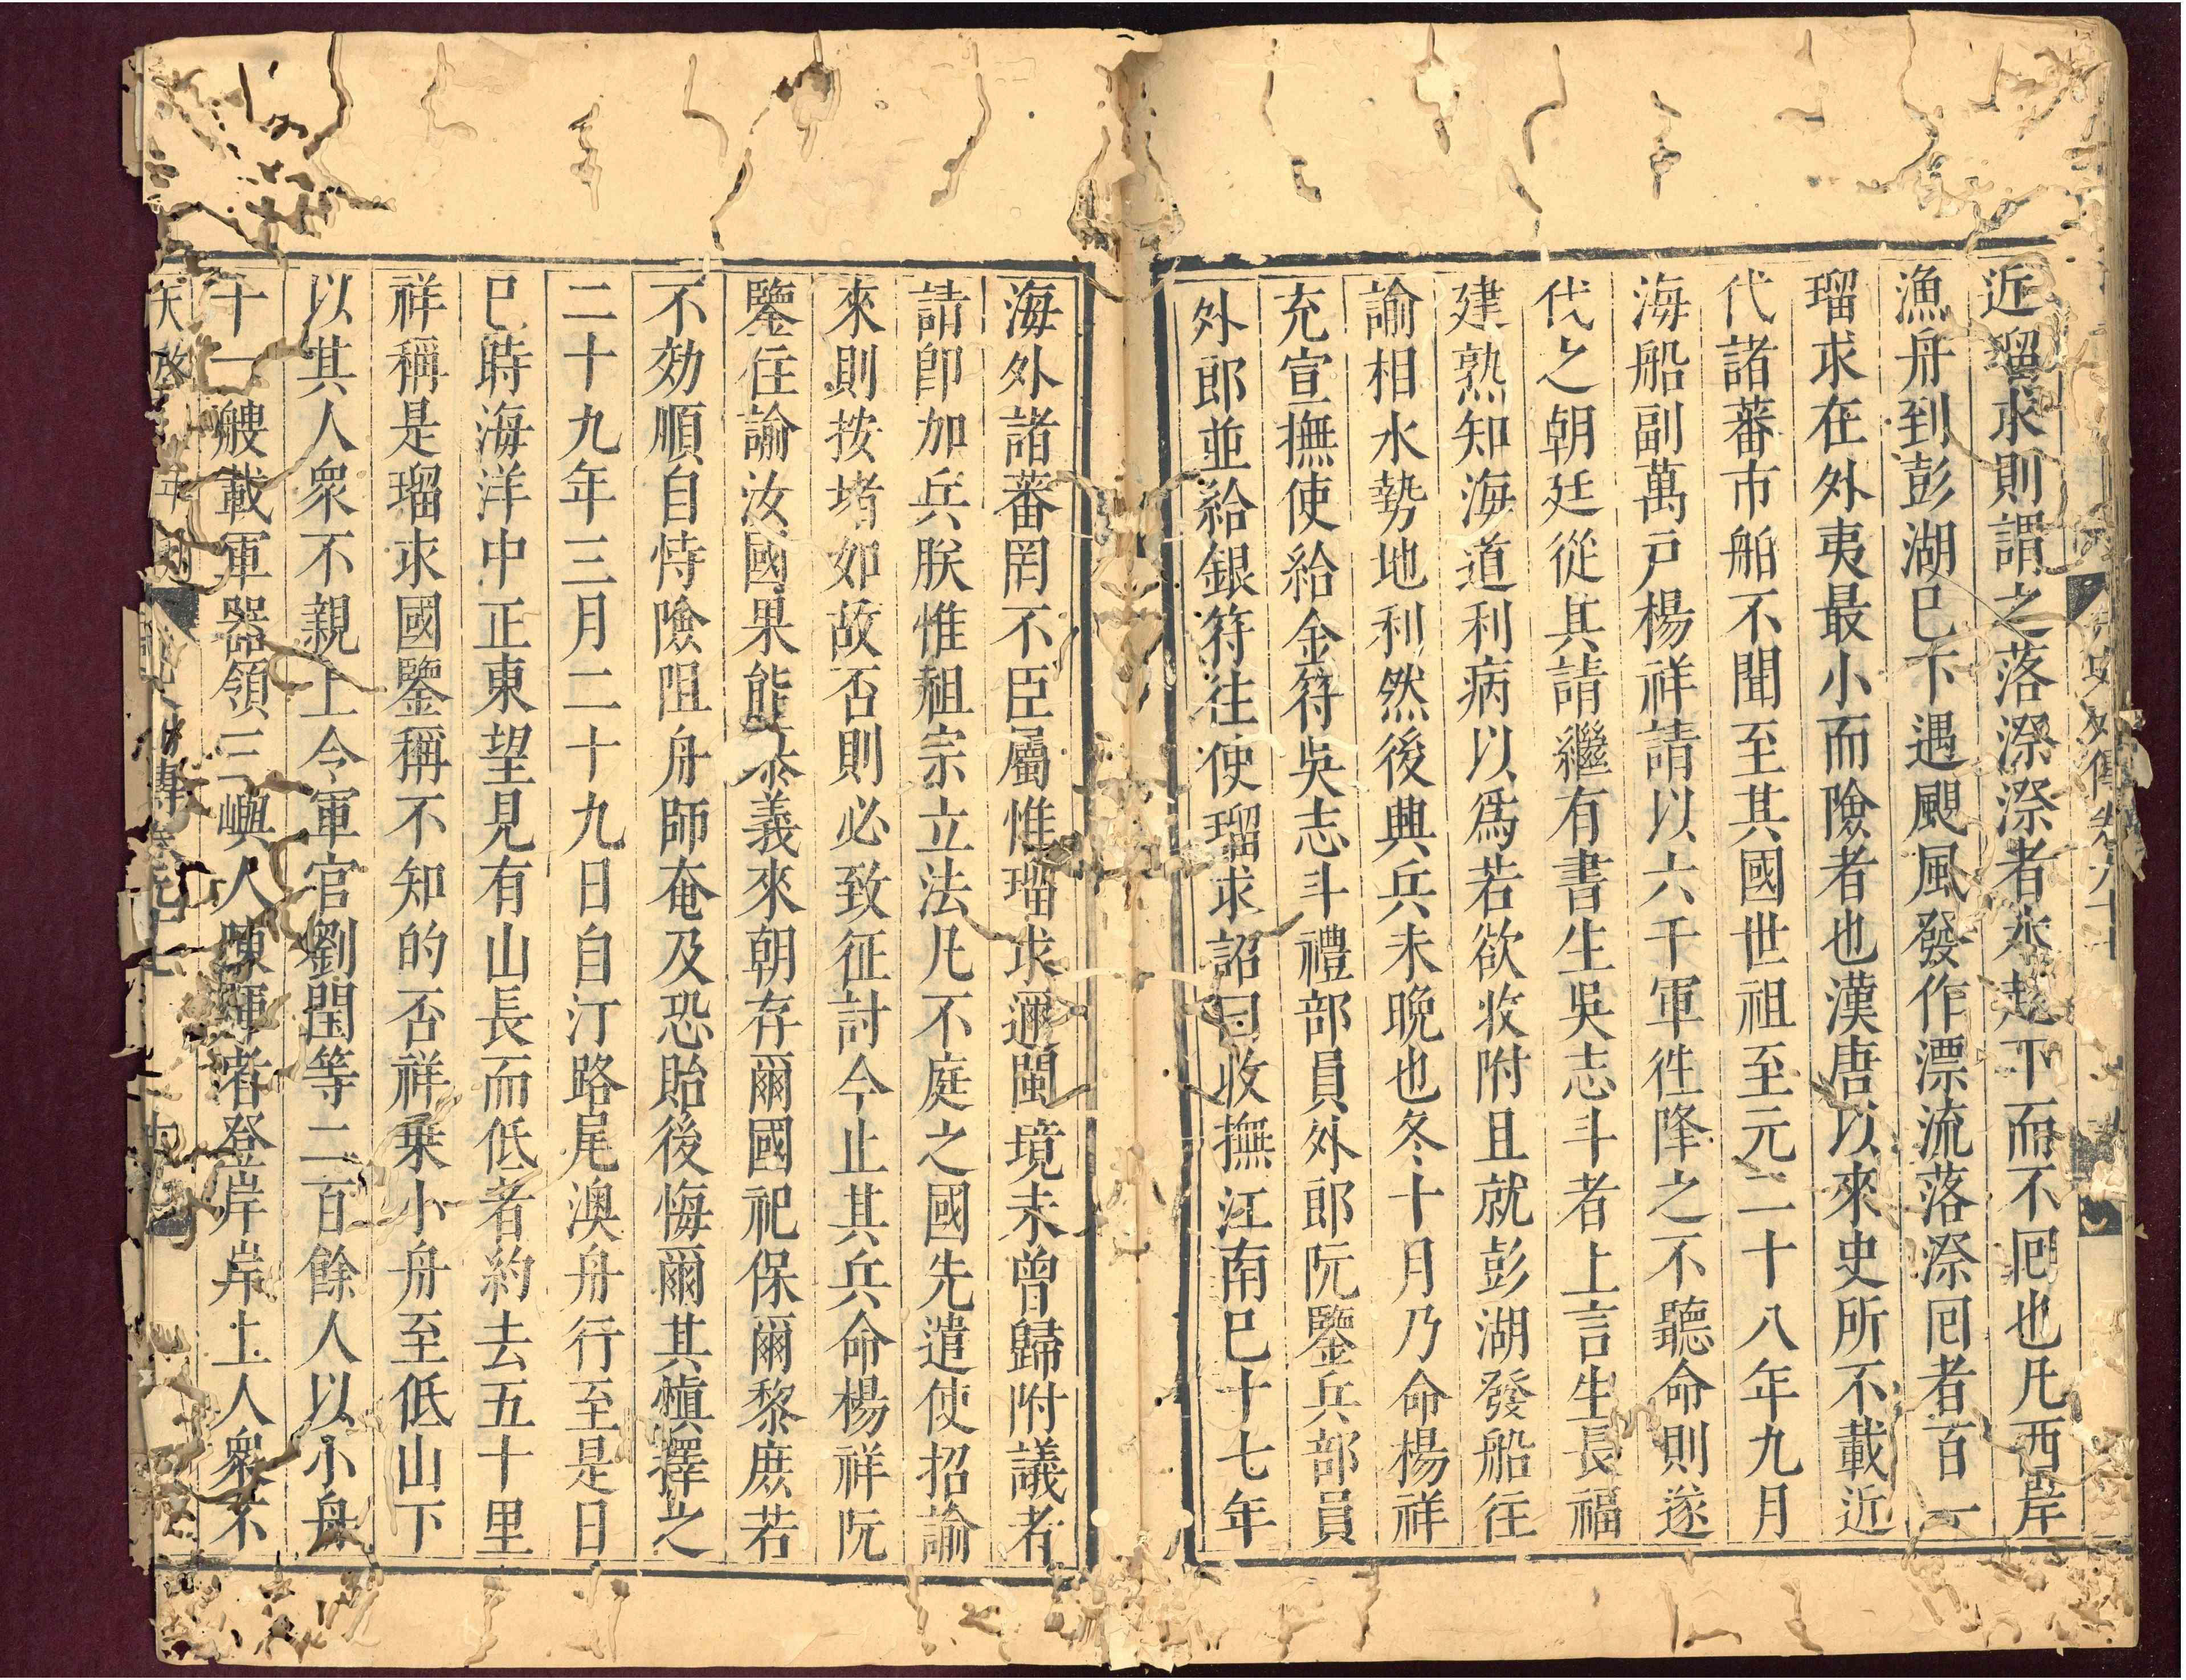 近瑠求則謂之落漈漈者水趍下而不回也凡西岸
漁舟到彭湖巳下遇颶風發作漂流落漈回者百一
瑠求在外夷最小而險者也漢唐以來史所不載近
代諸蕃市舶不聞至其國世祖至元二十八年九月
海船副萬戸楊祥請以六千軍徃降之不聽命則遂
伐之朝廷從其請繼有書生吳志斗者上言生長福
建熟知海道利病以爲若欲收附且就彭湖發船往
諭相水勢地利然後興兵未晚也冬十月乃命楊祥
充宣撫使給金符吳志斗禮部員外郎阮鑒兵部員
外郎並給銀符往使瑠求詔曰收撫江南巳十七年
海外諸蕃罔不臣屬惟瑠求邇閩境未曾歸附議者
請卽加兵朕惟祖宗立法凡不庭之國先遣使招諭
來則按堵如故否則必致征討今止其兵命楊祥阮
鑒往諭汝國果能慕義來朝存爾國祀保爾黎庶若
不効順自恃險阻舟師奄及恐貽後悔爾其愼擇之
二十九年三月二十九日自汀路尾澳舟行至是日
巳時海洋中正東望見有山長而低者約去五十里
祥稱是瑠求國鑒稱不知的否祥乗小舟至低山下
以其人衆不親上令軍官劉閏等二百餘人以小舟
十一艘載軍器領三嶼人陳煇者登岸岸上人衆不